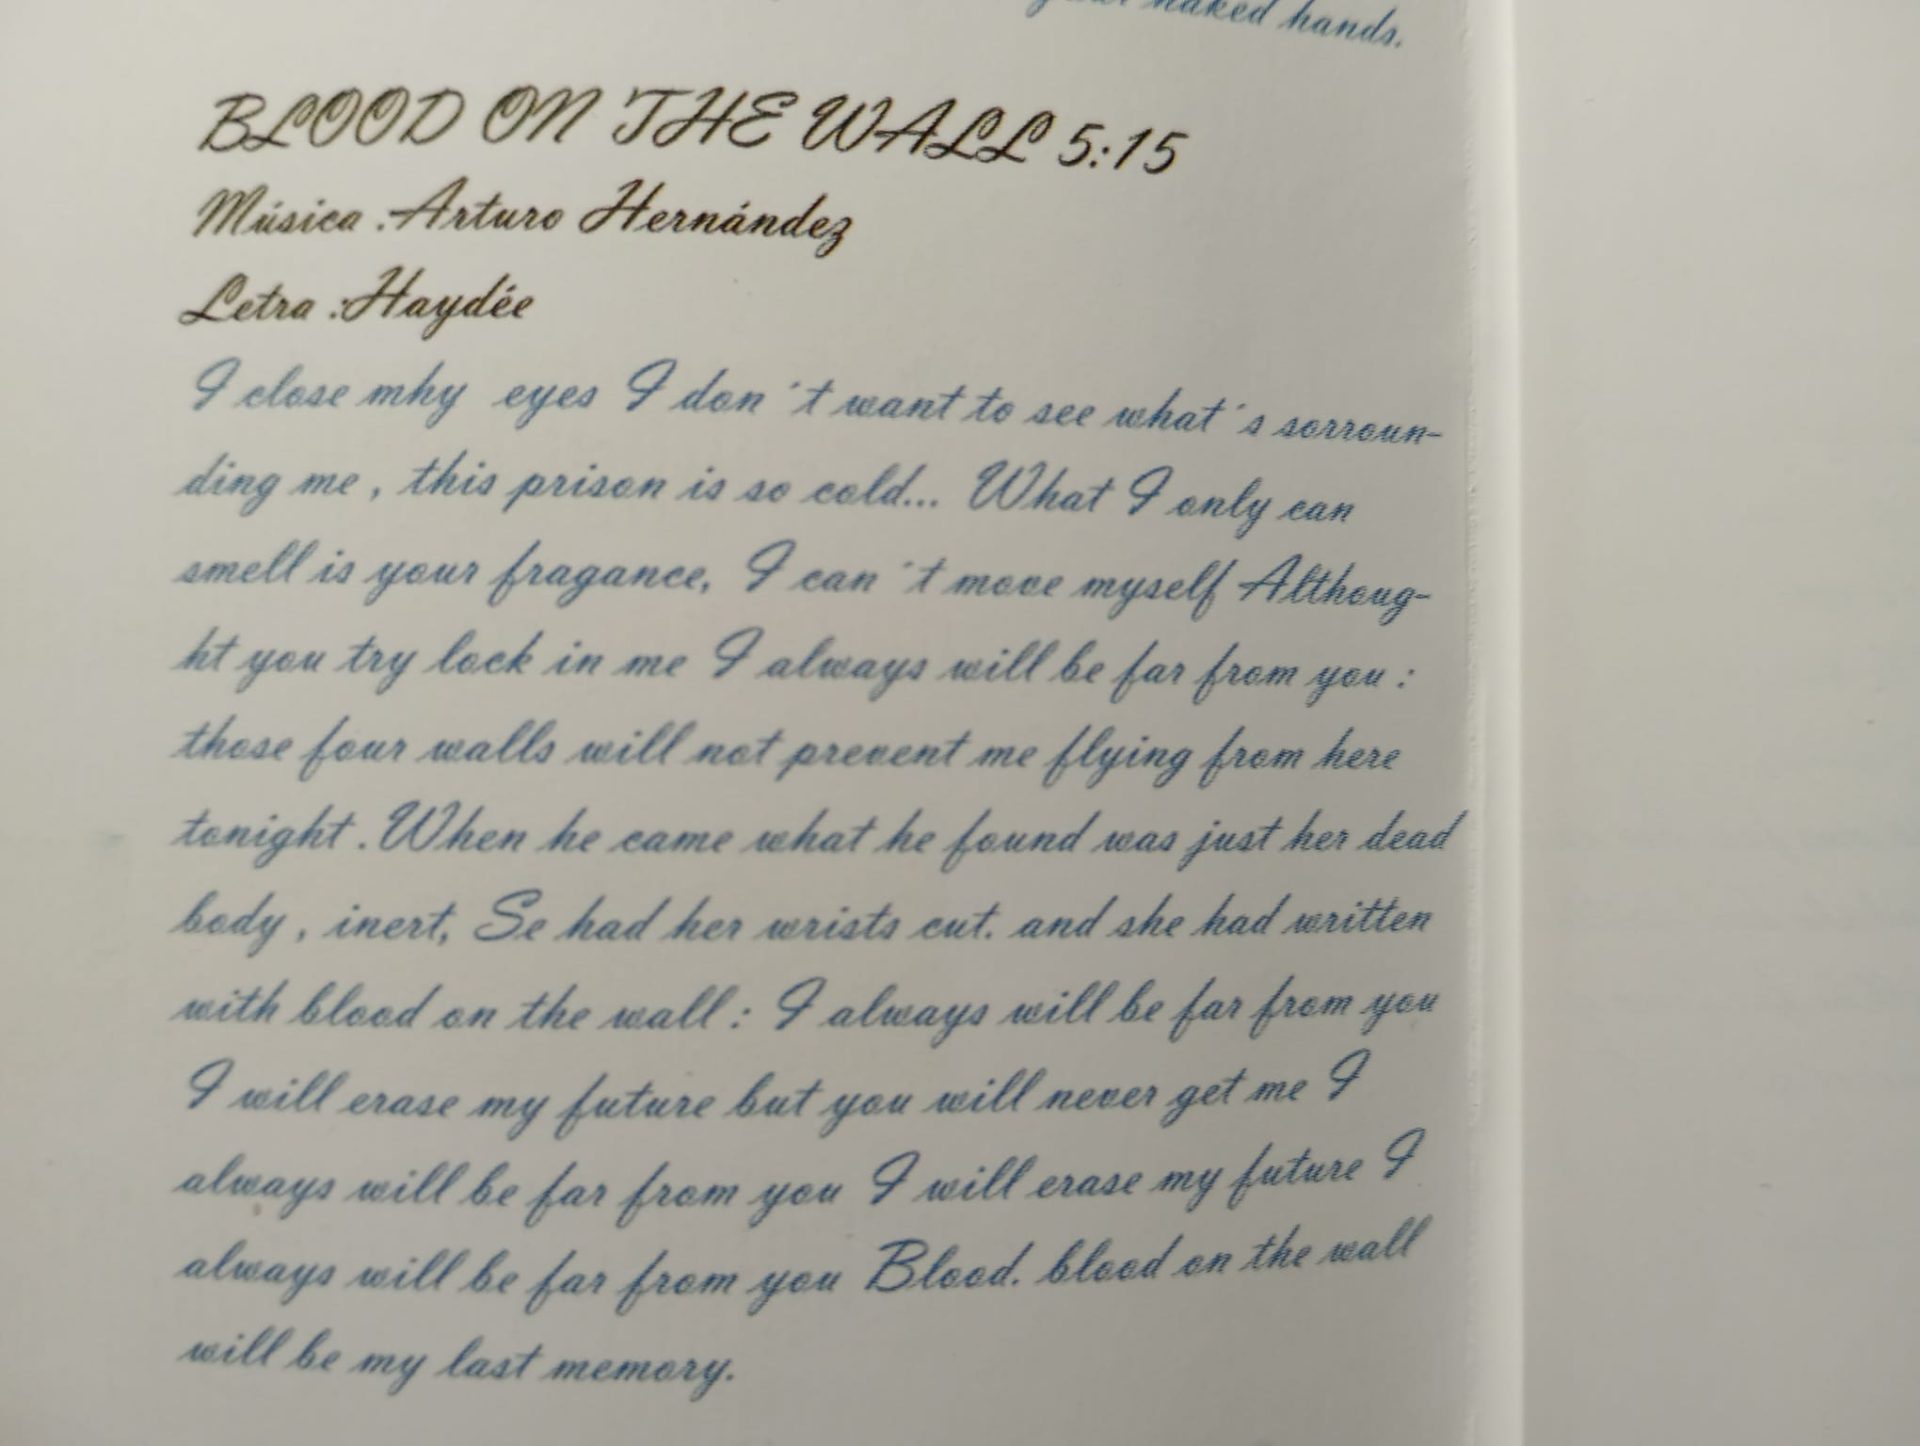 your naked hands.
BLOOD ON THE WALL 5:15
Música :Arturo Hernández
Letra :Haydée
I close mhy eyes I don´t want to see what´s sorroun-
ding me, this prison is so cold... What I only can
smell is your fragance, I can´t move myself Althoug-
ht you try lock in me I always will be far from you :
those four walls will not prevent me flying from here
tonight. When he came what he found was just her dead
body, inert, Se had her wrists cut. and she had written
with blood on the wall: I always will be far from you
I will erase my future but you will never get me I
always will be far from you I will erase my future I
always will be far from you Blood. blood on the wall
will be my last memory.